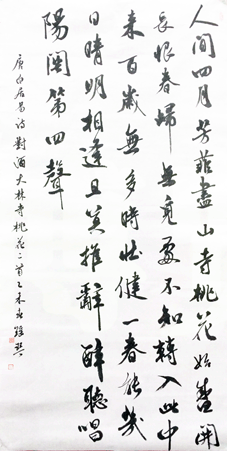 人间四月芳菲盡山寺桃花始盛開
長恨春歸無覓處不知轉入此中
来百歲無多時壮健一春能幾
日晴明相逢且莫推辭醉聽唱
陽関第四聲
唐白居易诗對酒大林寺桃花二首乙未